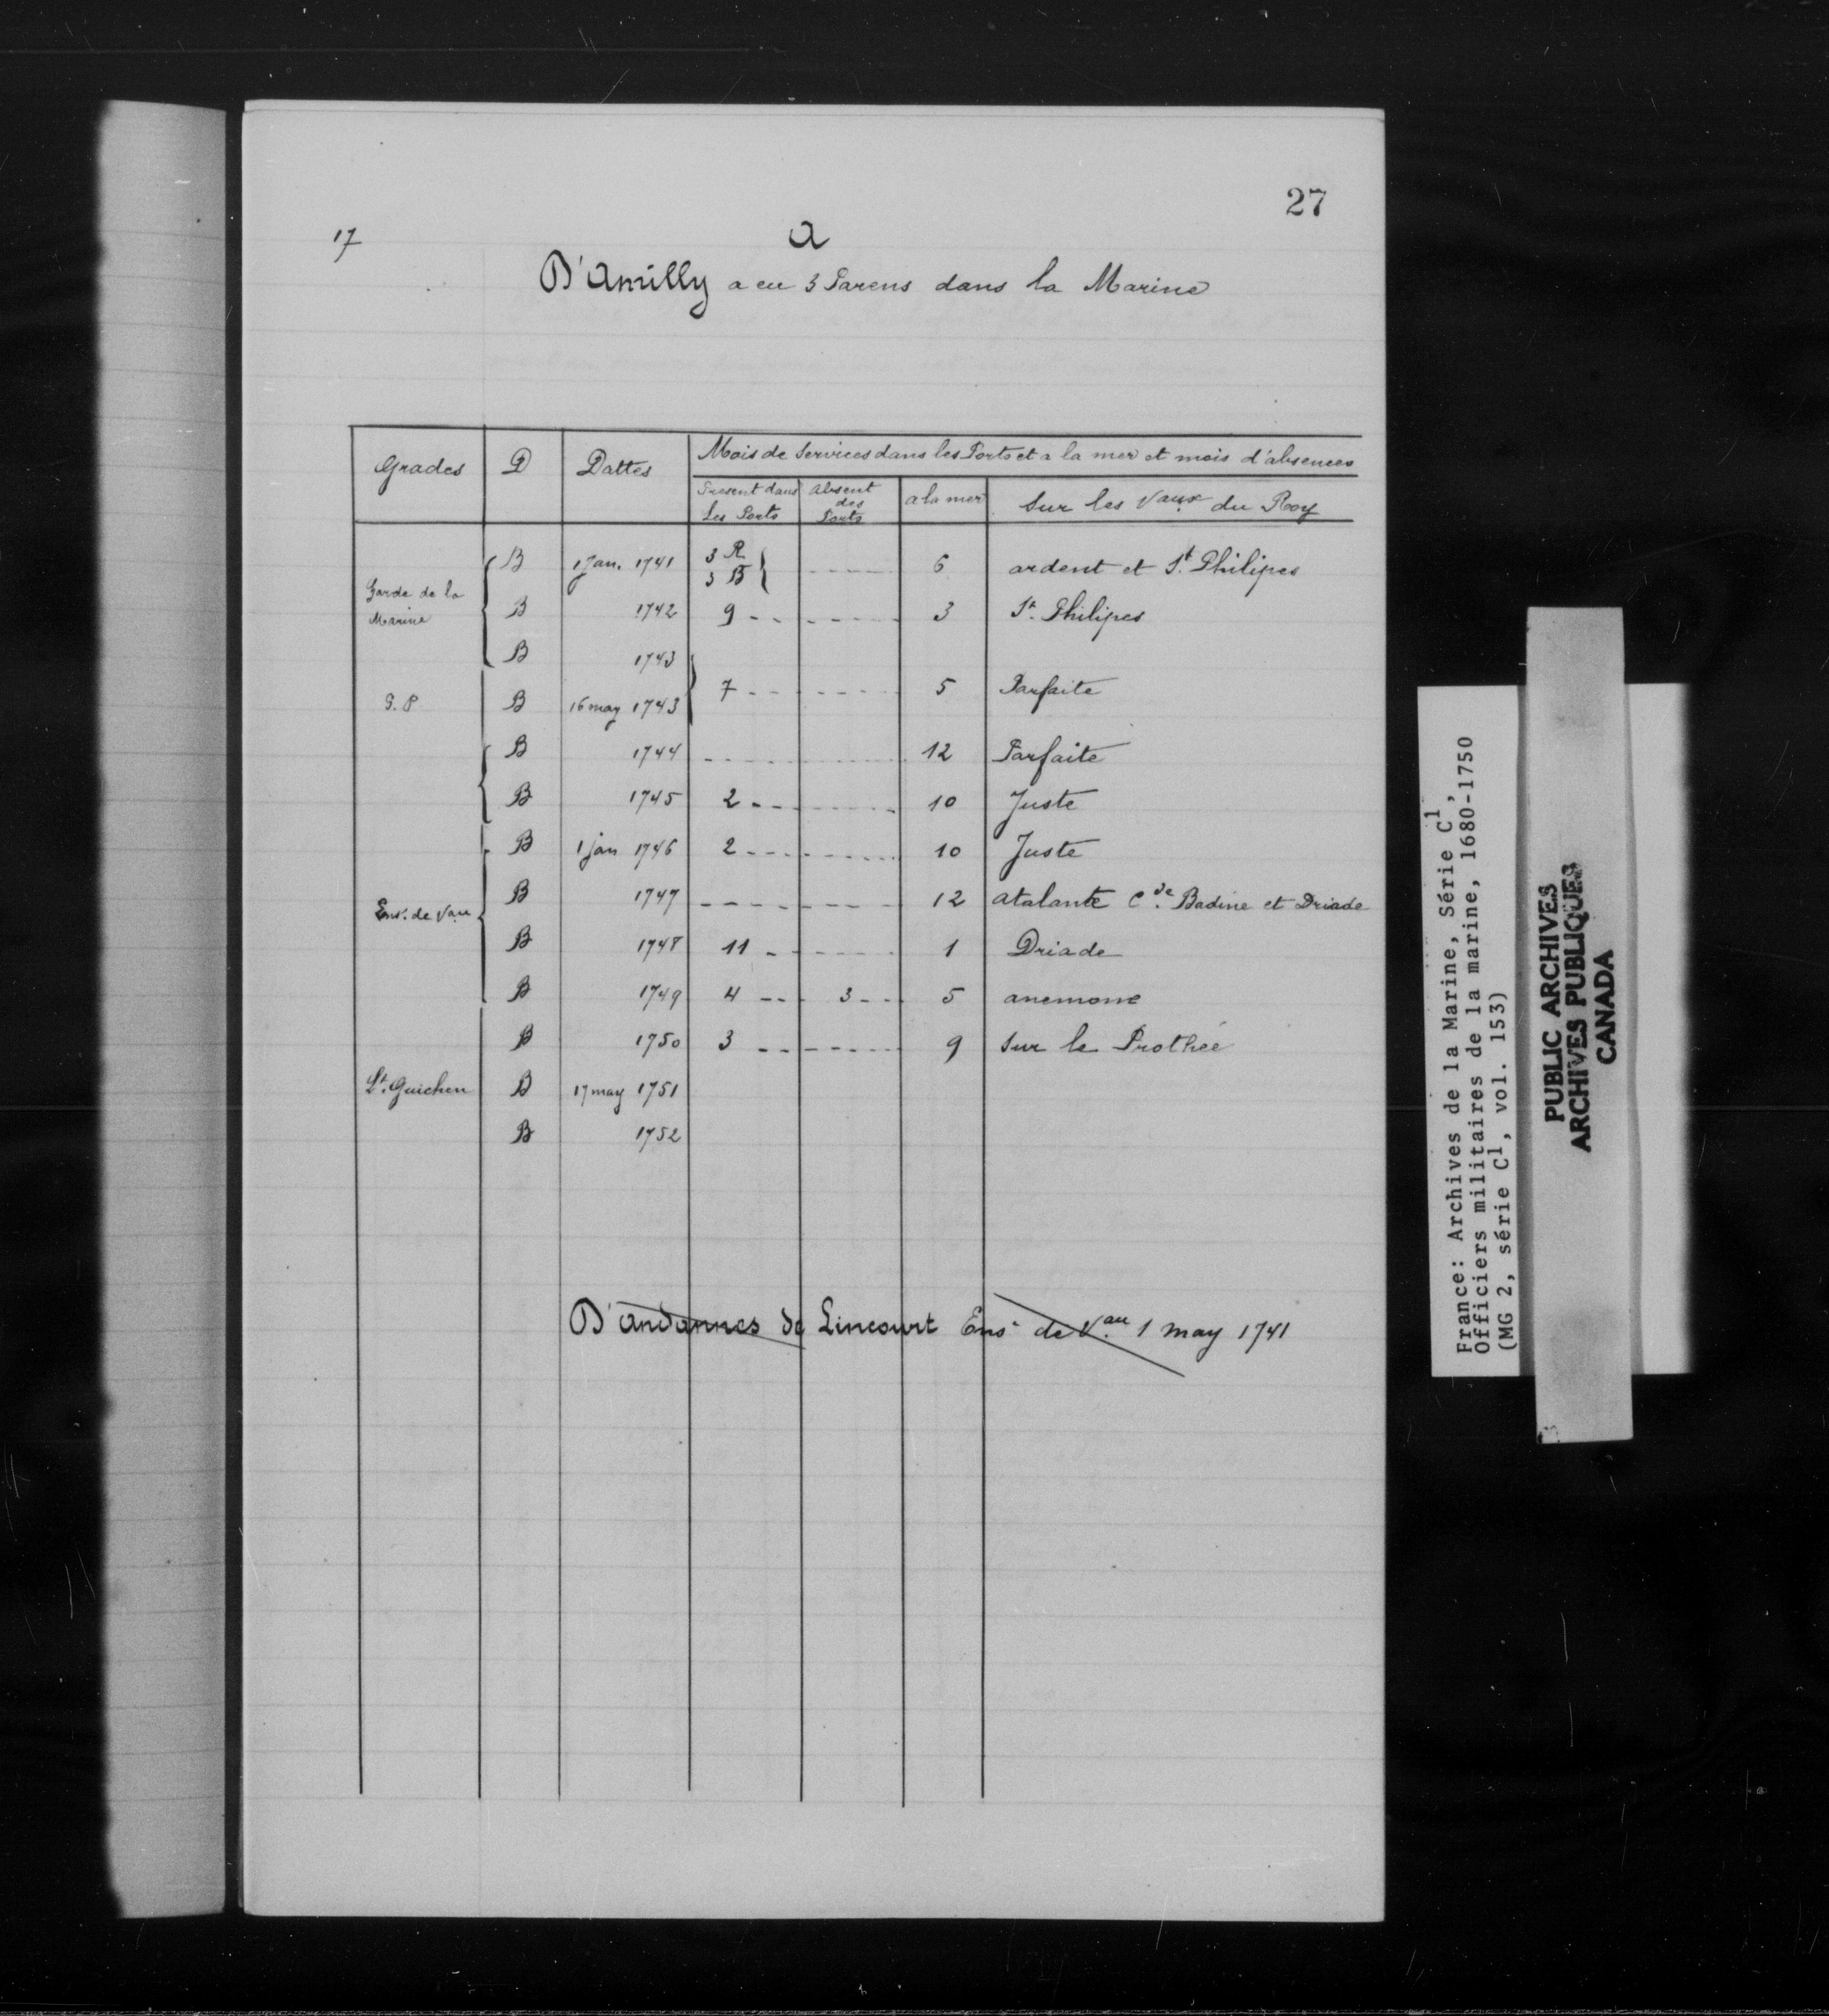 27
17
a
D'Amilly a eu 3 Parens dans la Marine
Grades D Dattes Mois de Services dans les Ports et a la mer et mois d'absences
Present dans les Ports absent des Ports a la mer Sur les Vaux du Roy
Garde de la Marine
B 1 Jan. 1741 3 R 3 B 6 ardent et St. Philipes
B 1742 9 3 St. Philipes
B 1743
G. P B 16 may 1743 7 5 Parfaite
B 1744 12 Parfaite
B 1745 2 10 Juste
B 1 jan 1746 2 10 Juste
Ens. de Vau B 1747 12 atalante Cde Badine et Driade
B 1748 11 1 Driade
B 1749 4 3 5 anemone
B 1750 3 9 Sur le Prothée
Lt. Guichen B 17 may 1751
B 1752
D'andannes de Lincourt Ens de Vau 1 may 1741
France: Archives de la Marine, Série C1,
Officiers militaires de la marine, 1680-1750
(MG 2, série C1, vol. 153)
PUBLIC ARCHIVES
ARCHIVES PUBLIQUES
CANADA